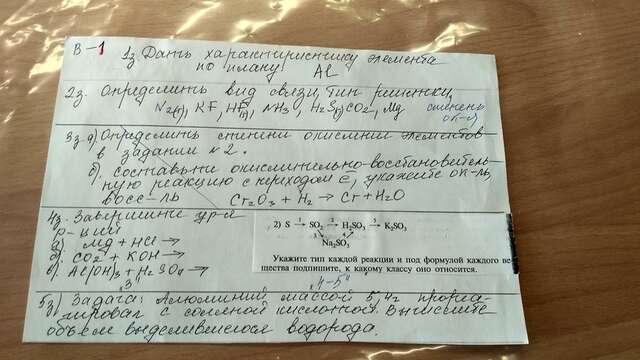 В-1 1з. Дать характеристику элемента
по плану Al
2з. Определить вид связи, тип решетки,
N2(г), KF, HF(г), NH3, H2S(г), CO2, Mg степень
ок-я
3з а) Определить степени окисления элементов
в задании №2.
б) составьте окислительно-восстановитель-
ную реакцию с переходом ē, укажите ок-ль,
восс-ль Cr2O3 + H2 → Cr + H2O
4з. Завершите ур-я
р-ций
а) Mg + HCl →
б) CO2 + KOH →
в) Al(OH)3 + H2SO4 →
"3"
2) S 1→ SO2 2→ H2SO3 5→ K2SO3
3 4
Na2SO3
Укажите тип каждой реакции и под формулой каждого ве-
щества подпишите, к какому классу оно относится.
"4-5"
5з) Задача: Алюминий массой 5,4г прореа-
гировал с соляной кислотой. Вычислите
объем выделившегося водорода.